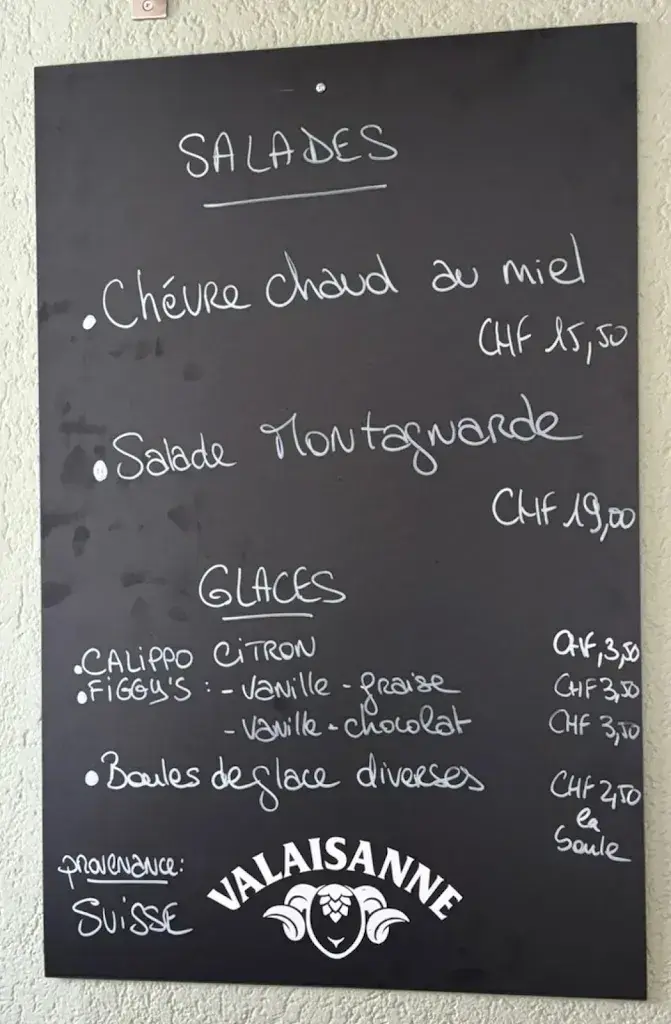 SALADES
• Chévre chaud au miel
CHF 15,50
• Salade Montagnarde
CHF 19,00
GLACES
• CALIPPO CITRON CHF 3,50
• FIGGY'S : - vanille - fraise CHF 3,50
- vanille - chocolat CHF 3,50
• Boules de glace diverses CHF 2,50
la
boule
provenance:
SUISSE
VALAISANNE